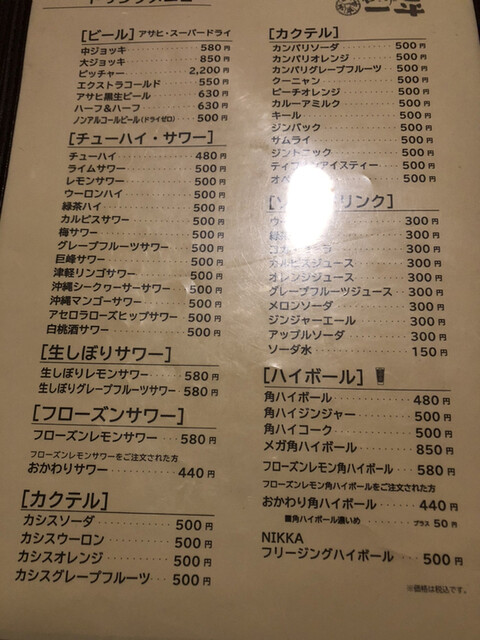 ドリンクメニュー
[ビール] アサヒ・スーパードライ
中ジョッキ 580円
大ジョッキ 850円
ピッチャー 2,200円
エクストラコールド 550円
アサヒ黒生ビール 630円
ハーフ&ハーフ 630円
ノンアルコールビール(ドライゼロ) 500円
[チューハイ・サワー]
チューハイ 480円
ライムサワー 500円
レモンサワー 500円
ウーロンハイ 500円
緑茶ハイ 500円
カルピスサワー 500円
梅サワー 500円
グレープフルーツサワー 500円
巨峰サワー 500円
津軽リンゴサワー 500円
沖縄シークヮーサーサワー 500円
沖縄マンゴーサワー 500円
アセロラローズヒップサワー 500円
白桃酒サワー 500円
[生しぼりサワー]
生しぼりレモンサワー 580円
生しぼりグレープフルーツサワー 580円
[フローズンサワー]
フローズンレモンサワー 580円
フローズンレモンサワーをご注文された方
おかわりサワー 440円
[カクテル]
カシスソーダ 500円
カシスウーロン 500円
カシスオレンジ 500円
カシスグレープフルーツ 500円
[カクテル]
カンパリソーダ 500円
カンパリオレンジ 500円
カンパリグレープフルーツ 500円
クーニャン 500円
ピーチオレンジ 500円
カルーアミルク 500円
キール 500円
ジンバック 500円
サムライ 500円
ジントニック 500円
アイスティー 500円
500円
リンク]
300円
300円
300円
カルピスジュース 300円
オレンジジュース 300円
グレープフルーツジュース 300円
メロンソーダ 300円
ジンジャーエール 300円
アップルソーダ 300円
ソーダ水 150円
[ハイボール]
角ハイボール 480円
角ハイジンジャー 500円
角ハイコーク 500円
メガ角ハイボール 850円
フローズンレモン角ハイボール 580円
フローズンレモン角ハイボールをご注文された方
おかわり角ハイボール 440円
角ハイボール濃いめ プラス 50円
NIKKA
フリージングハイボール 500円
※価格は税込です。